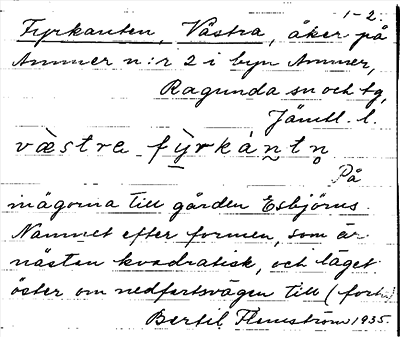 1-2.
Fyrkanten, Västra, åker på
Ammer n:r 2 i byn Ammer,
Ragunda sn och tg,
Jämtl. l.
væ̀stra fỳrkàntn̥
På
inägorna till gården Esbjörns.
Namnet efter formen, som är
nästan kvadratisk, och läget
öster om nedfartsvägen till (forts.)
Bertil Flemström 1935.